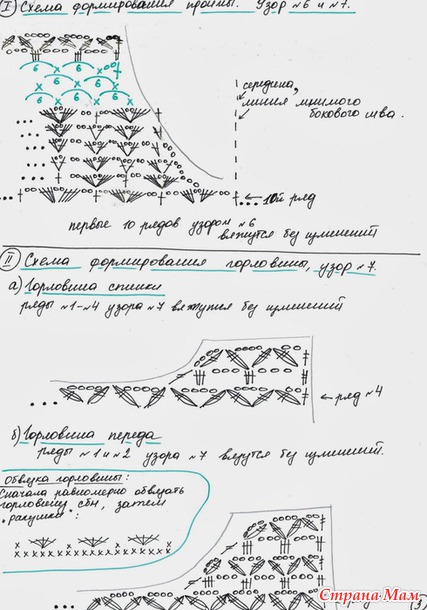 I Схема формирования проймы. Узор №6 и №7.
6 6 6
6 6 6
середина,
линия мнимого
бокового шва.
← 10й ряд
первые 10 рядов узором №6
вяжутся без изменений
II Схема формирования горловины, узор №7.
а) Горловина спинки
ряды №1-№4 узора №7 вяжутся без изменений
← ряд №4
б) Горловина переда
ряды №1 и №2 узора №7 вяжутся без изменений.
Обвязка горловины:
Сначала равномерно обвязать
горловину сбн, затем
"ракушки":
Страна Мам